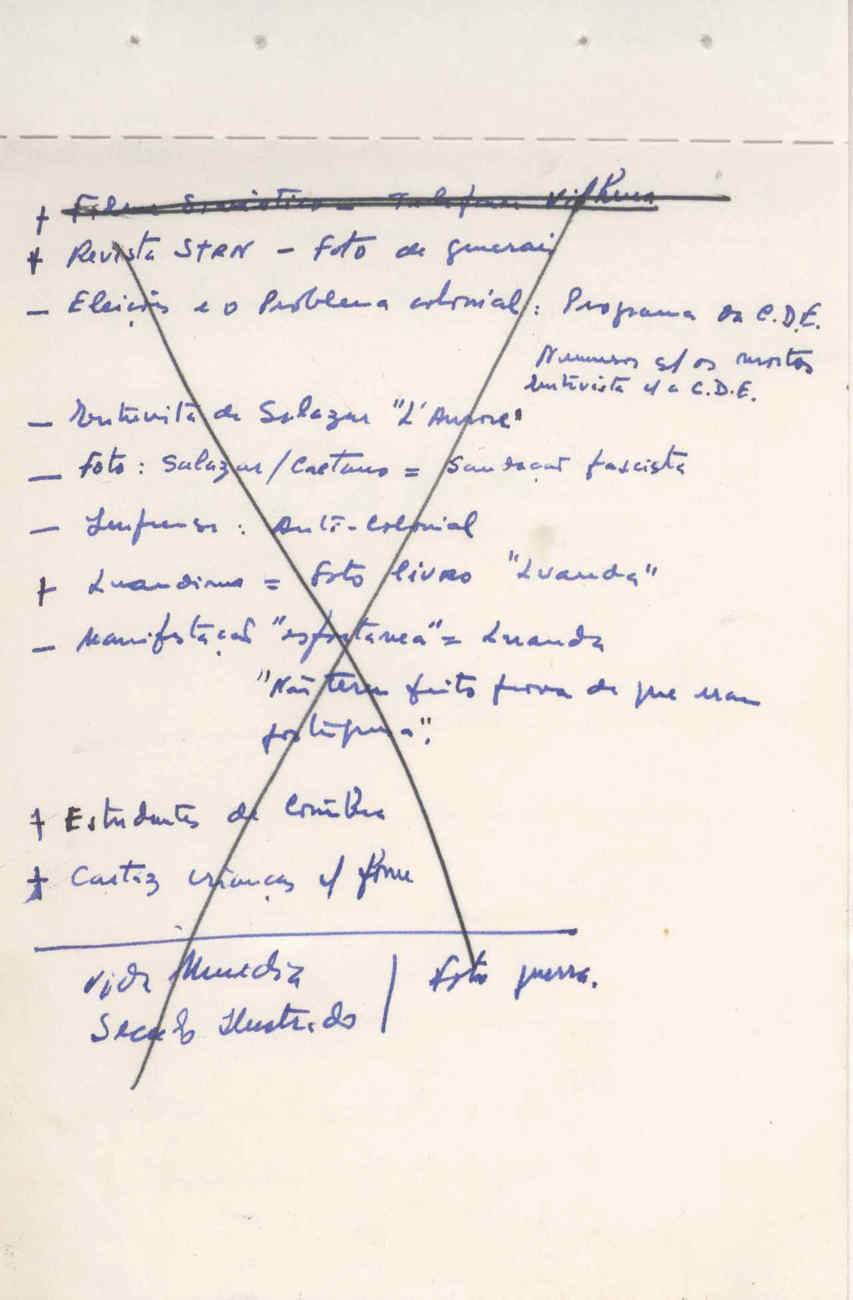 + Vilhena
+ Revista STERN - Foto de generais
- Eleições e o Problema colonial: Programa da C.D.E.
Numeros s/ os mortos
Entrevista c/ a C.D.E.
- Entrevista de Salazar "L'Aurore"
- Foto: Salazar/Caetano = Saudação fascista
- Imprensa: Anti-Colonial
+ Luandino = Foto livro "Luanda"
- Manifestação "espontanea" = Luanda
"Não terem feito prova de que eram
portugueses".
+ Estudantes de Coimbra
+ Cartaz crianças c/ fome
Vida Mundial | Foto guerra.
Seculo Ilustrado